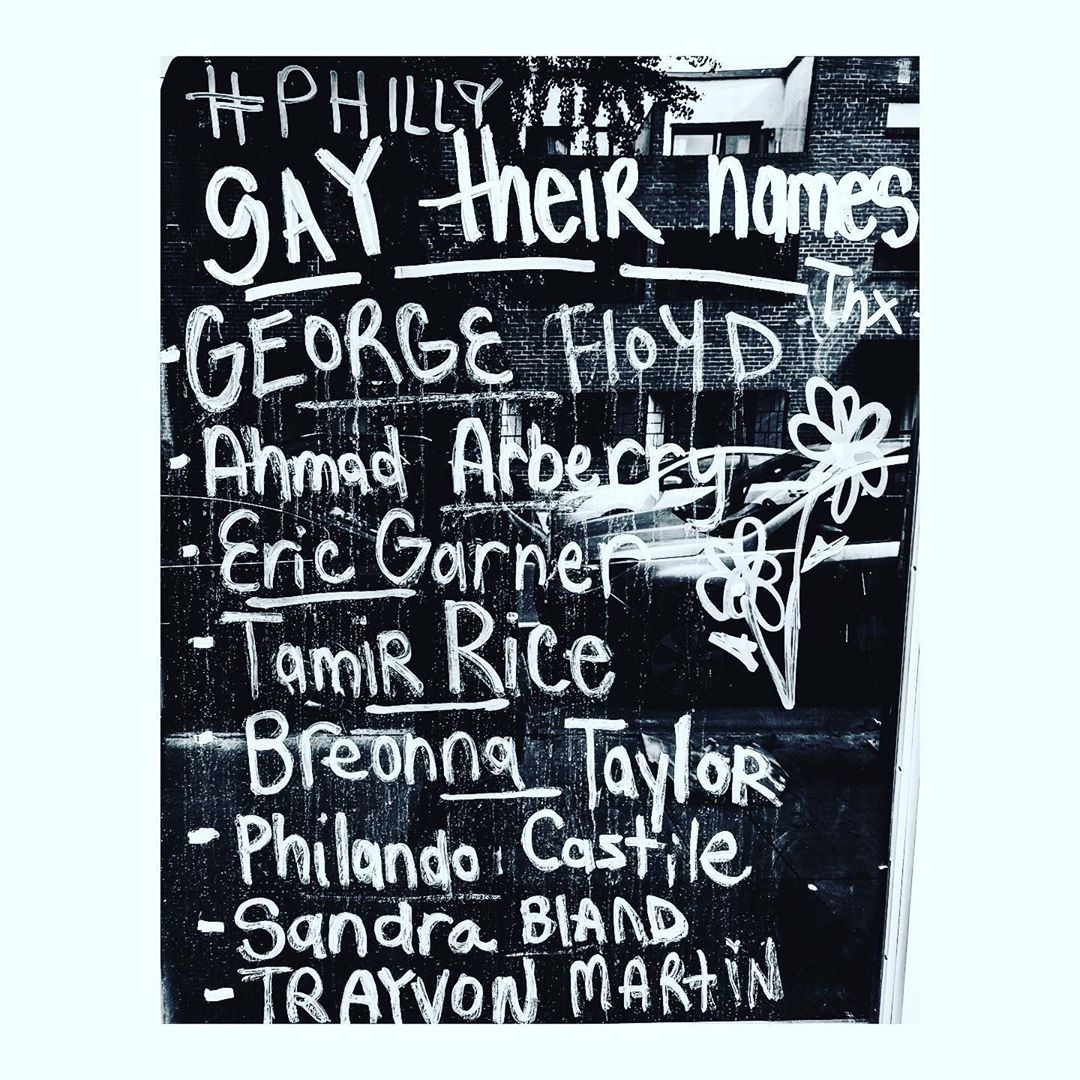 #PHILLY
SAY their names
Thx
- GEORGE FLOYD
- Ahmad Arberry
- Eric Garner
- Tamir Rice
- Breonna Taylor
- Philando Castile
- Sandra BLAND
- TRAYVON MARtiN